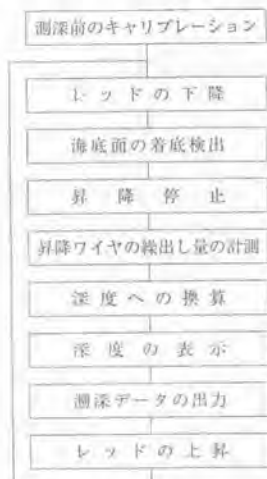 測深前のキャリブレーション
レッドの下降
海底面の着底検出
昇降停止
昇降ワイヤの繰出し量の計測
深度への換算
深度の表示
測深データの出力
レッドの上昇